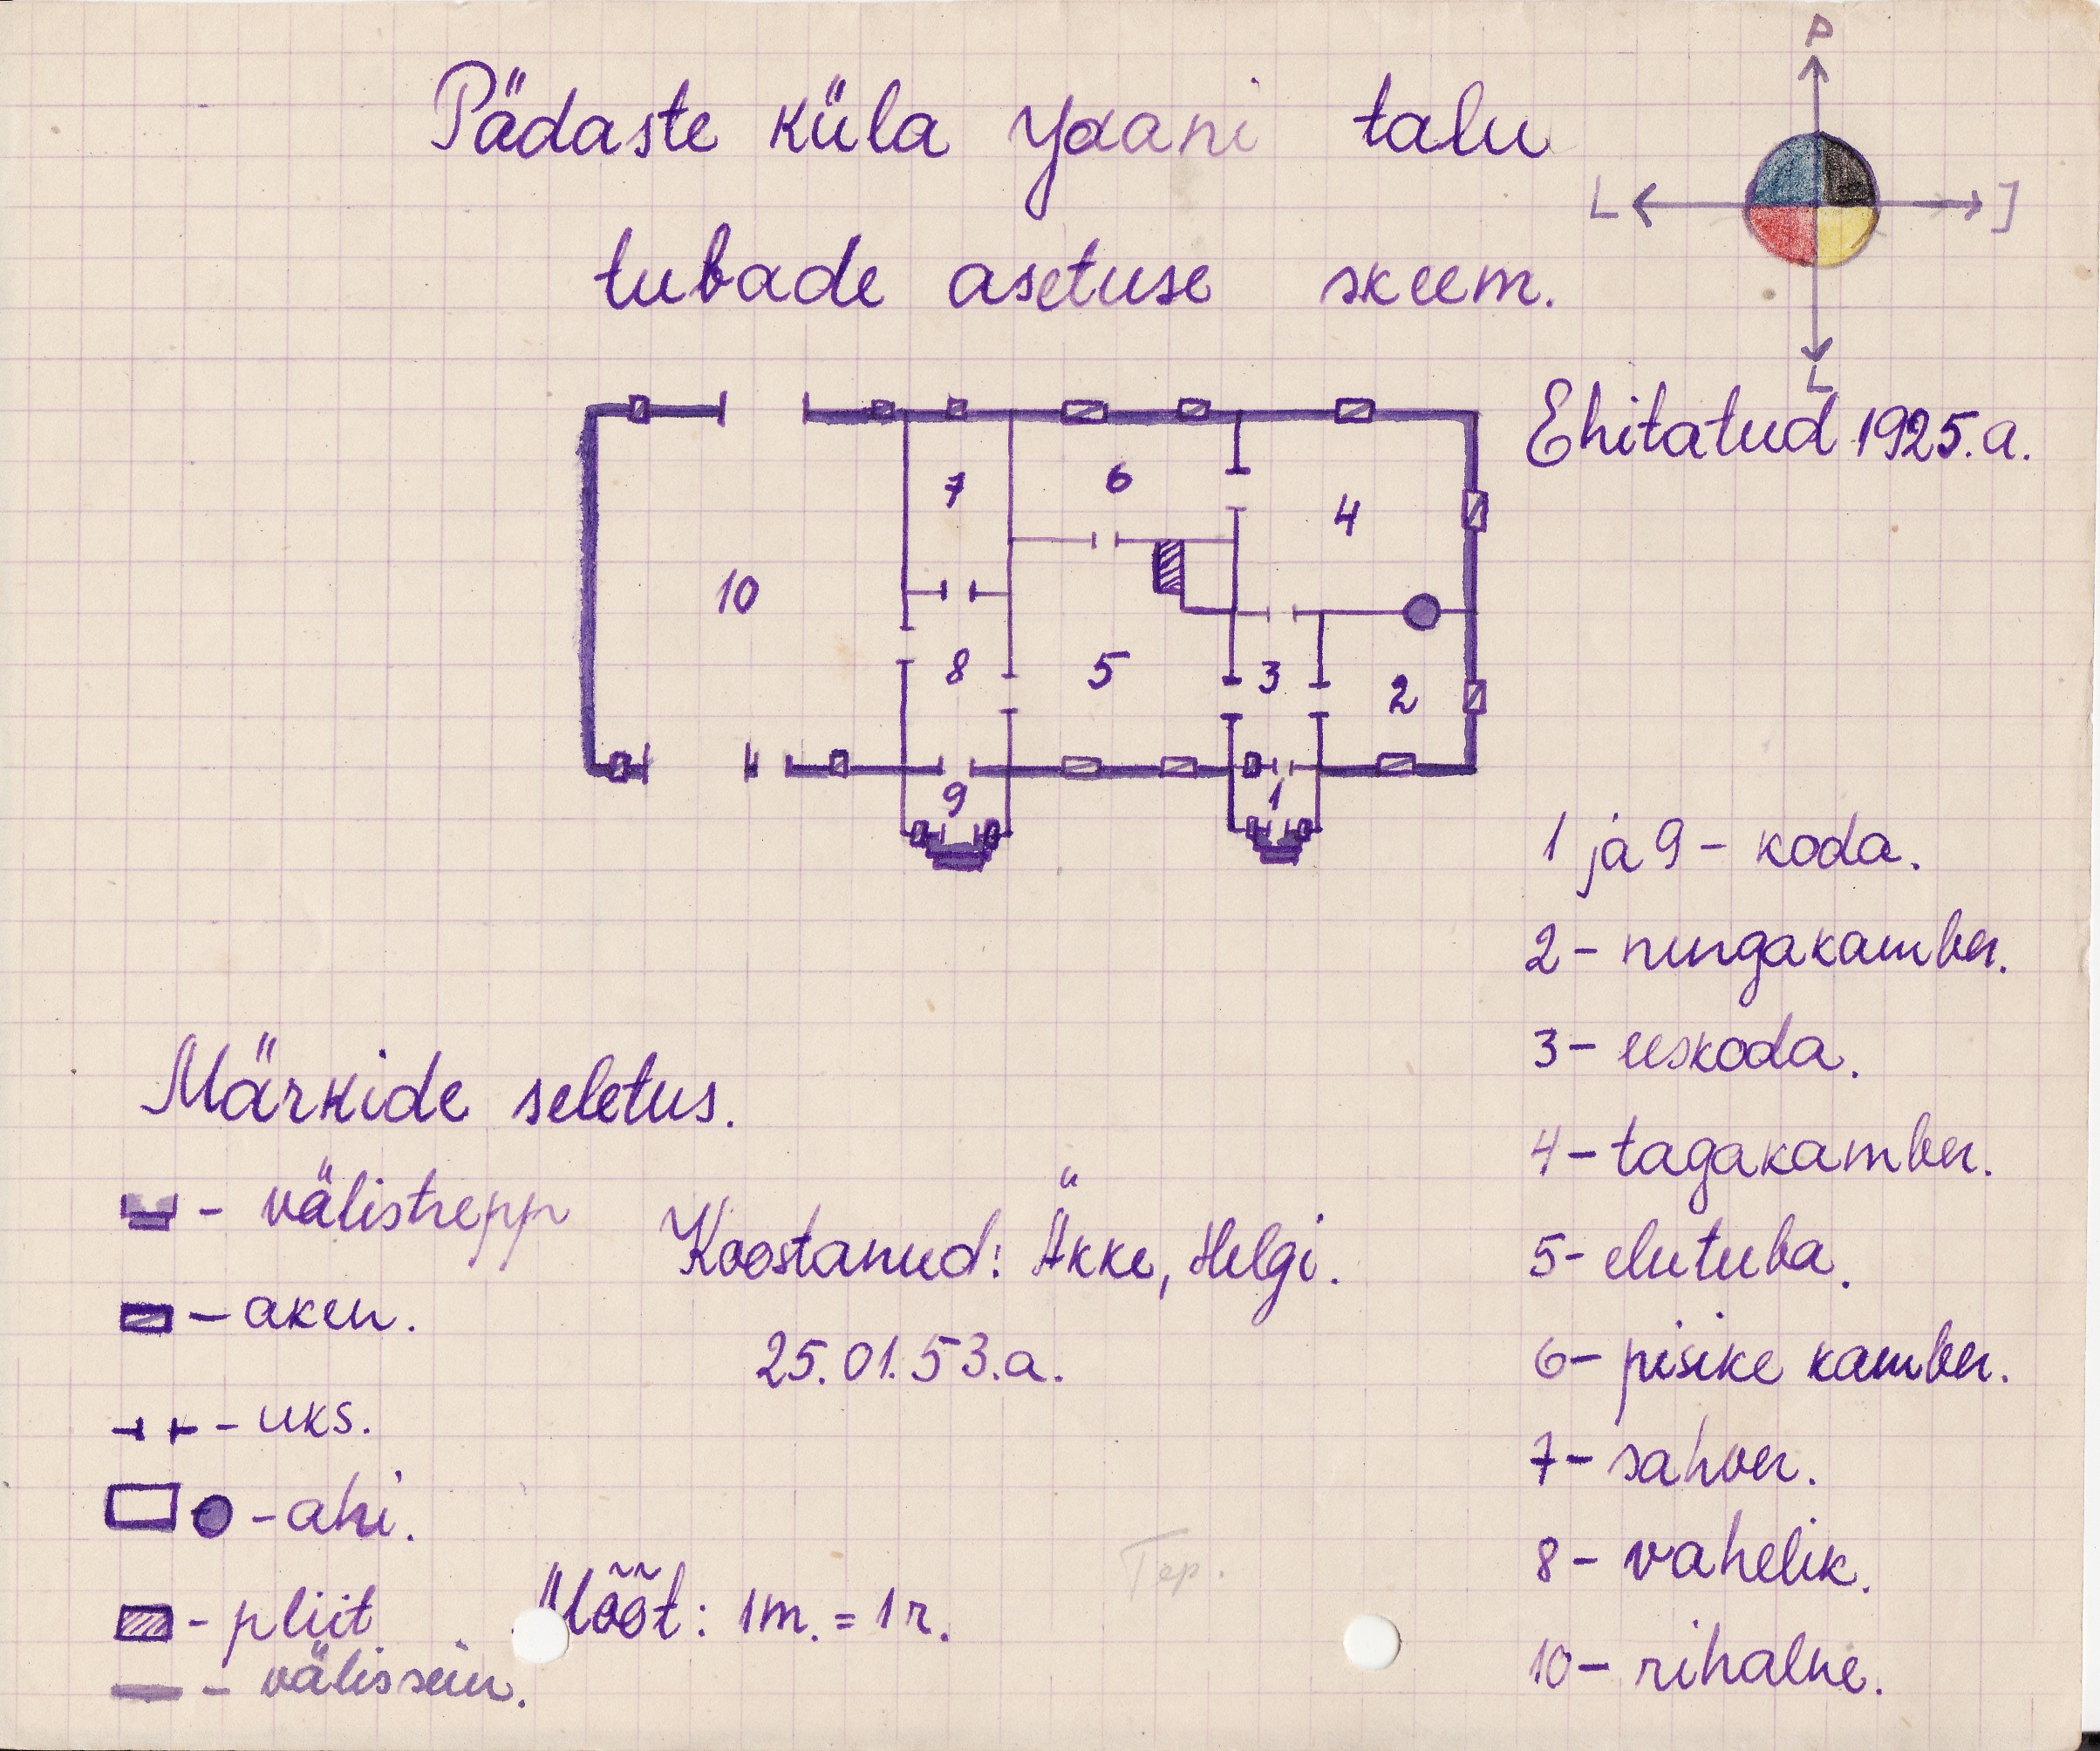 P
Pädaste küla Yaani talu
L J
tubade asetuse skeem.
L
Ehitatud 1925.a.
7 6 4
10
8 5 3 2
9 1
1 ja 9 – koda.
2 – nurgakamber.
3 – eeskoda.
4 – tagakamber.
5 – elutuba.
6 – pisike kamber.
7 – sahver.
8 – vahelik.
10 – rihalne.
Märkide seletus.
– välistrepp
– aken.
– uks.
– ahi.
– pliit
– välissein.
Koostanud: Äkke, Helgi.
25.01.53.a.
Mõõt: 1m. = 1r.
Тер.